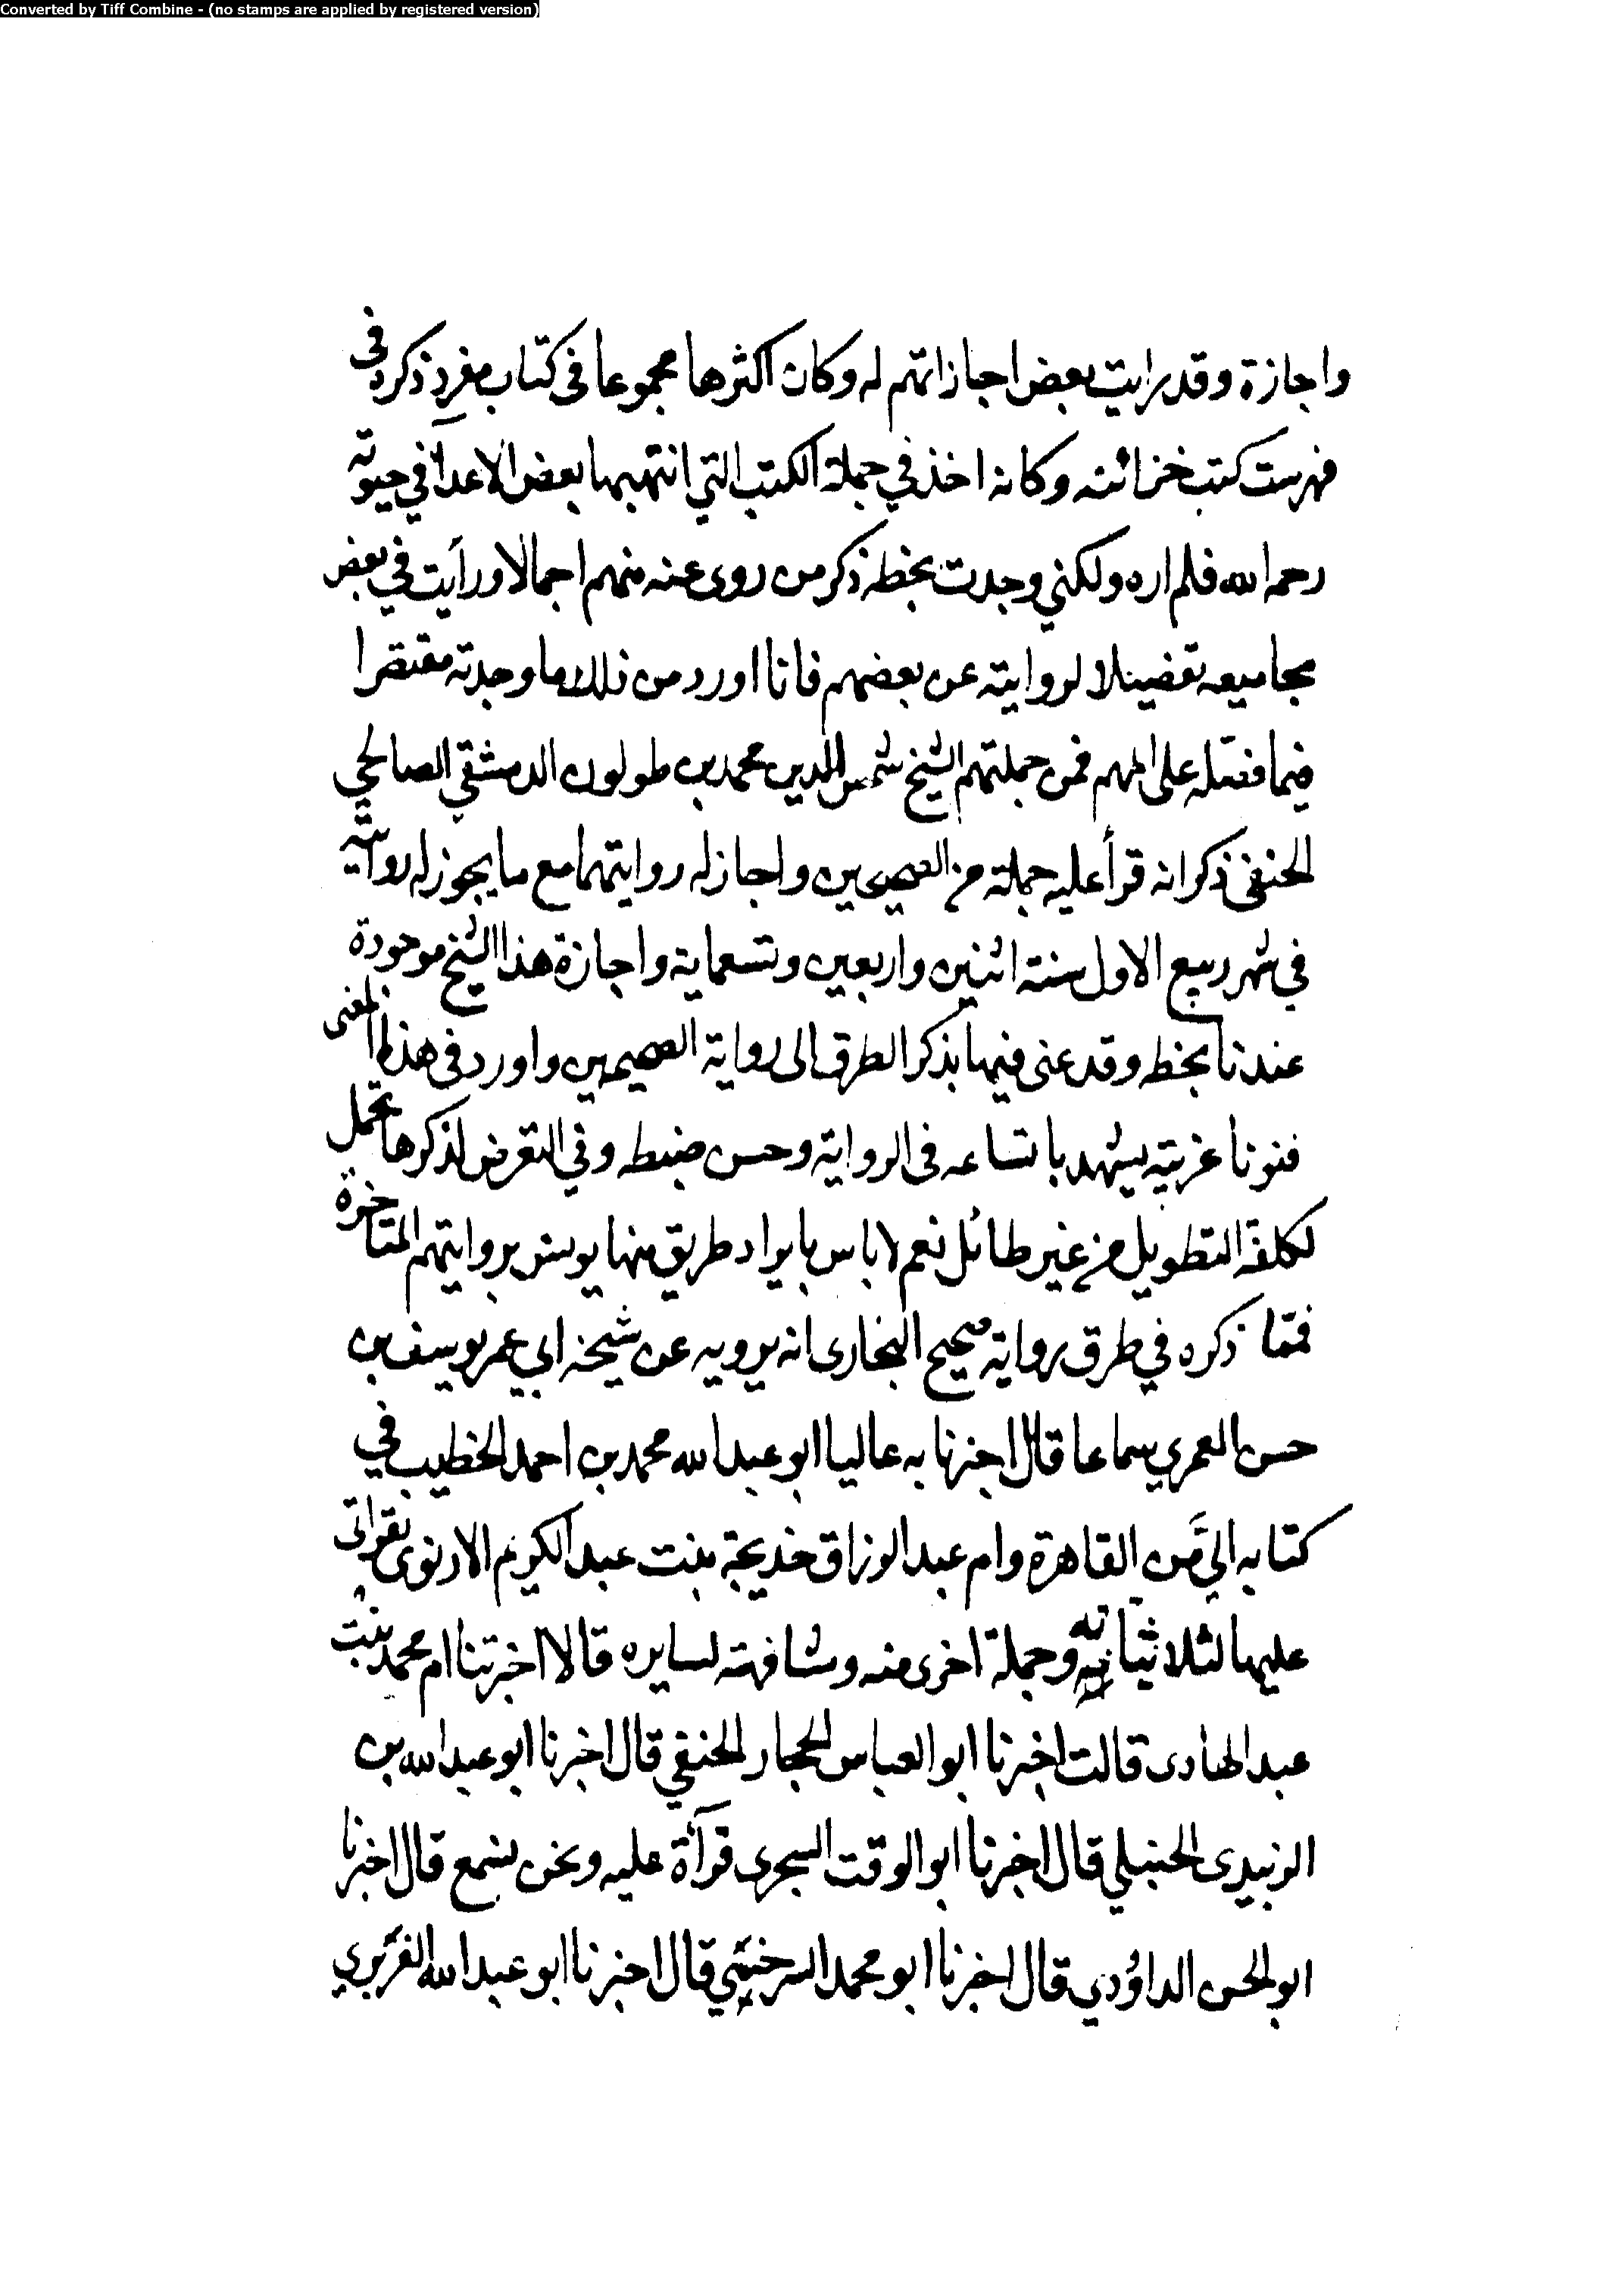 Converted by Tiff Combine - (no stamps are applied by registered version)
واجازة وقد رايت بعض اجازاتهم له وكان اكثرها مجموعا فى كتاب مفرد ذكره فى
فهرست كتب خزانته وكانه اخذ في جملة الكتب التي انتهبها بعض الاعدا في حيوته
رحمه الله فلم اره ولكني وجدت بخطه ذكر من روى عنه منهم اجمالا ورايت في بعض
مجاميعه تفضيلا لروايته عن بعضهم فانا اورد من ذلك ما وجدته مقتصرا
فيما فصّله على المهم فمن جملتهم الشيخ شمس الدين محمد بن طولون الدمشقي الصالحي
الحنفي ذكر انه قرأ عليه جملة من الصحيحين واجاز له روايتهما مع ما يجوز له روايته
في شهر ربيع الاول سنة اثنين واربعين وتسعماية واجازة هذا الشيخ موجودة
عندنا بخطه وقد عنى فيها بذكر الطرق الى رواية الصحيحين واورد فى هذا المعنى
فنونا غريبه يشهد باتساعه فى الرواية وحسن ضبطه وفي التعرض لذكرها تحمل
لكلفة التطويل من غير طائل نعم لا باس بايراد طريق منها يونس بروايتهم المتاخرة
فمّما ذكره في طرق رواية صحيح البخارى انه يرويه عن شيخه ابي عمر يوسف بن
حسن العمري سماعا قال اخبرنا به عاليا ابو عبد الله محمد بن احمد الخطيب في
كتابه اليّ من القاهرة وام عبد الرزاق خديجة بنت عبد الكريم الارنوى بقراتى
عليها لثلاثياته وجملة اخرى منه ومشافهة لسايره قالا اخبرتنا ام محمد بنت
عبد الهادى قالت اخبرنا ابو العباس الحجار الحنفي قال اخبرنا ابو عبد الله بن
الزبيدى الحنبلي قال اخبرنا ابو الوقت السجزى قرآة عليه ونحن نسمع قال اخبرنا
ابو الحسن الداوُدي قال اخبرنا ابو محمد السرخسي قال اخبرنا ابو عبد الله الفربري